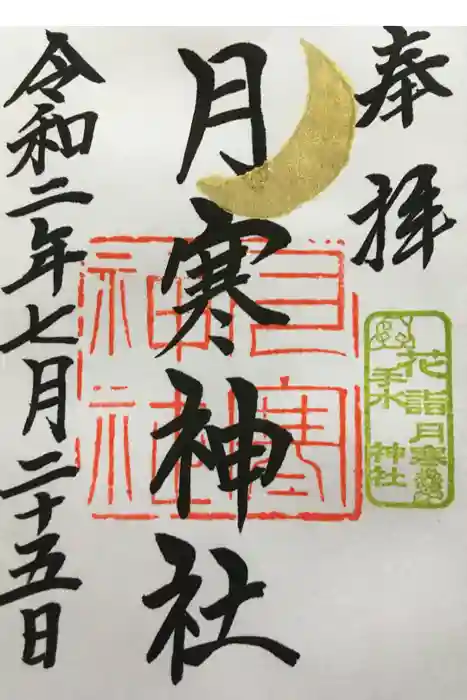 奉拝
花詣
手水
月寒神社
月寒神社
月寒神社
令和二年七月二十五日